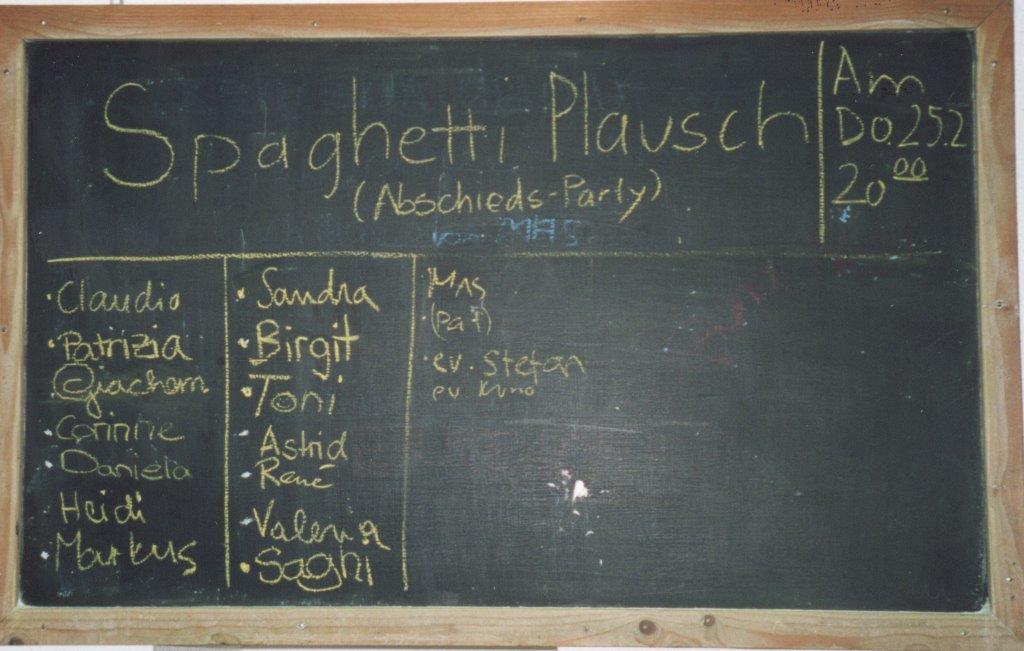 Spaghetti Plausch
(Abschieds-Party)
von MAS
Am
Do. 25.2
20⁰⁰
·Claudio
·Patrizia
Giachom
·Corinne
Daniela
Heidi
·Markus
·Sandra
·Birgit
·Toni
Astrid
René
·Valeria
·Saghi
MAS
·(Pat)
·ev. Stefan
ev Kuno